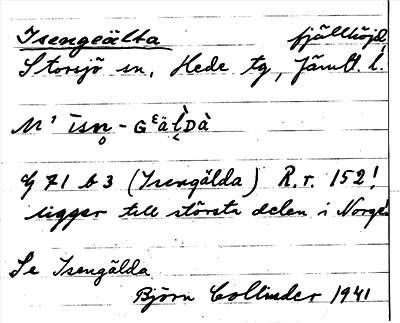 Isengeälta fjällhöjd
Storsjö sn, Hede tg, Jämtl. l.
īsn̥ - Gᴱäl̥Dà
71 b 3 (Isengälda) R.r. 152!
ligger till största delen i Norge
Se Isengälda
Björn Collinder 1941